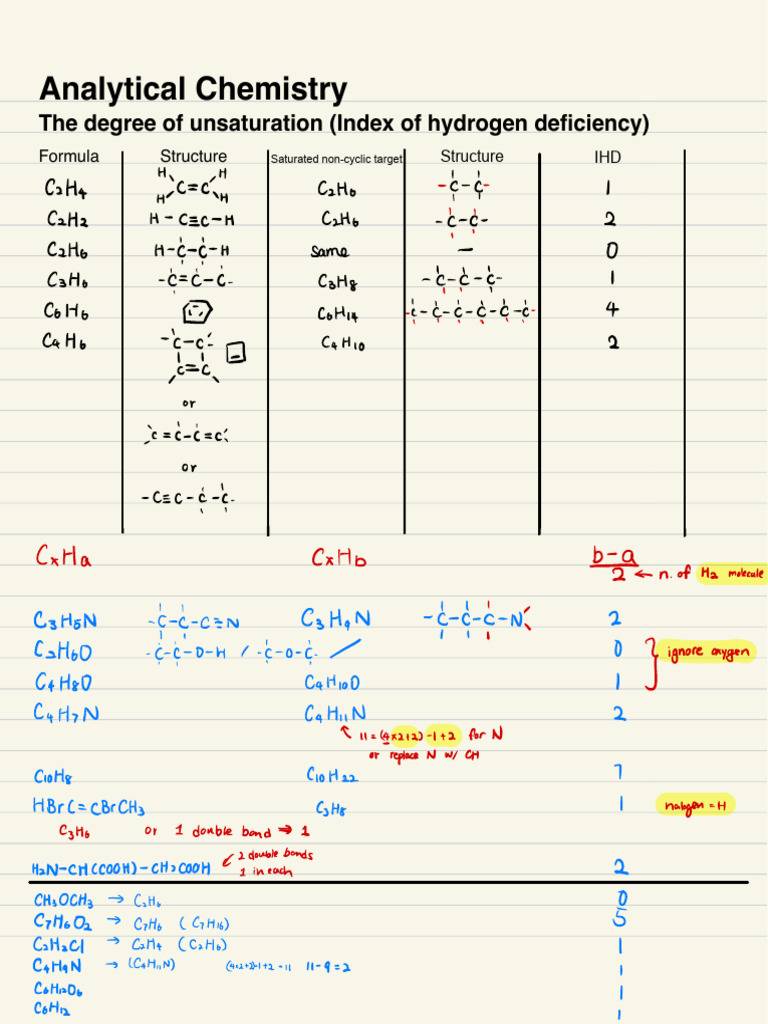 Analytical Chemistry
The degree of unsaturation (Index of hydrogen deficiency)
Formula Structure Saturated non-cyclic target Structure IHD
C2H4 H H C=C H H C2H6 -C-C- 1
C2H2 H-C≡C-H C2H6 -C-C- 2
C2H6 H-C-C-H same - 0
C3H6 -C=C-C- C3H8 -C-C-C- 1
C6H6 C6H14 -C-C-C-C-C-C- 4
C4H6 -C-C- C4H10 2
C=C
or
C=C-C=C
or
-C≡C-C-C-
CxHa CxHb b-a
2 ← n. of H2 molecule
C3H5N -C-C-C≡N C3H9N -C-C-C-N 2
C2H6O -C-C-O-H / -C-O-C- 0
ignore oxygen
C4H8O C4H10O 1
C4H7N C4H11N 2
11 = (4x2+2)-1+2 for N
or replace N w/ CH
C10H8 C10H22 7
HBrC=CBrCH3 C3H8 1 halogen = H
C3H6 or 1 double bond → 1
2 double bonds
H2N-CH(COOH)-CH2COOH 1 in each 2
CH3OCH3 → C2H6 0
C7H6O2 → C7H6 (C7H16) 5
C2H2Cl → C2H4 (C2H6) 1
C4H9N → (C4H11N) (4×2+2)-1+2=11 11-9=2 1
C6H12O6 1
C6H12 1